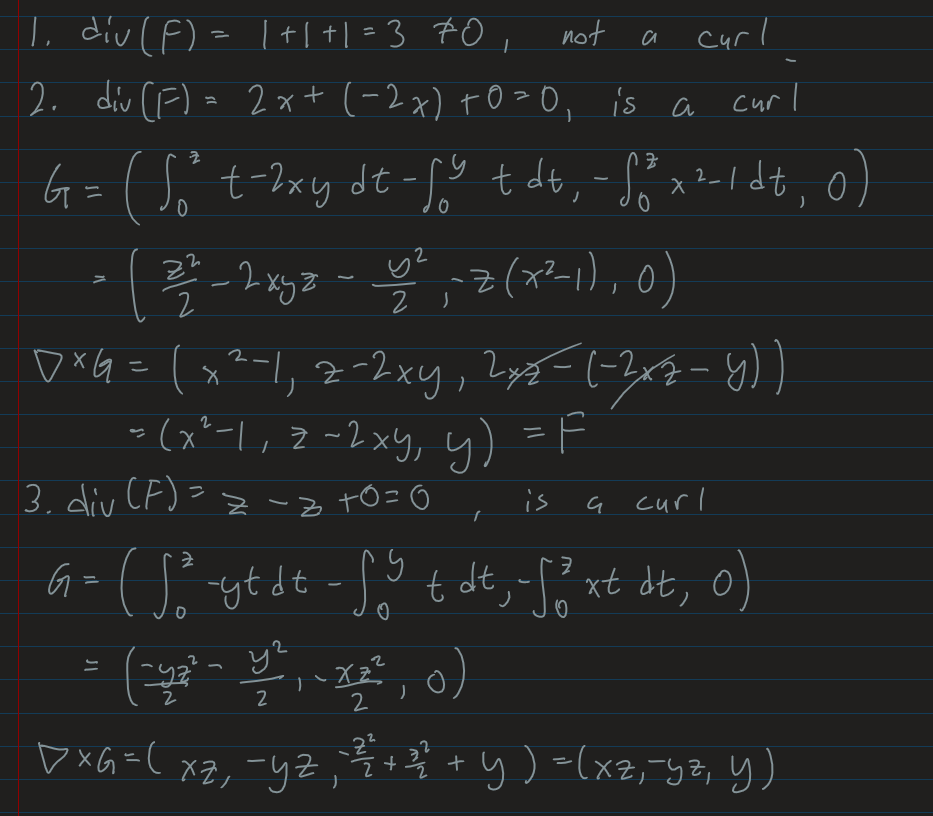 1. div(F) = 1+1+1=3 ≠0, not a curl
2. div(F) = 2x+(-2x)+0=0, is a curl
G = (∫₀ᶻ t-2xy dt - ∫₀ʸ t dt, -∫₀ᶻ x²-1 dt, 0)
= (z²/2 - 2xyz - y²/2, -z(x²-1), 0)
∇×G = (x²-1, z-2xy, 2xz-(-2xz-y))
= (x²-1, z-2xy, y) = F
3. div(F) = z-z+0=0, is a curl
G = (∫₀ᶻ -yt dt - ∫₀ʸ t dt, -∫₀ᶻ xt dt, 0)
= (-yz²/2 - y²/2, -xz²/2, 0)
∇×G=(xz, -yz, -z²/2+z²/2+y) =(xz,-yz, y)